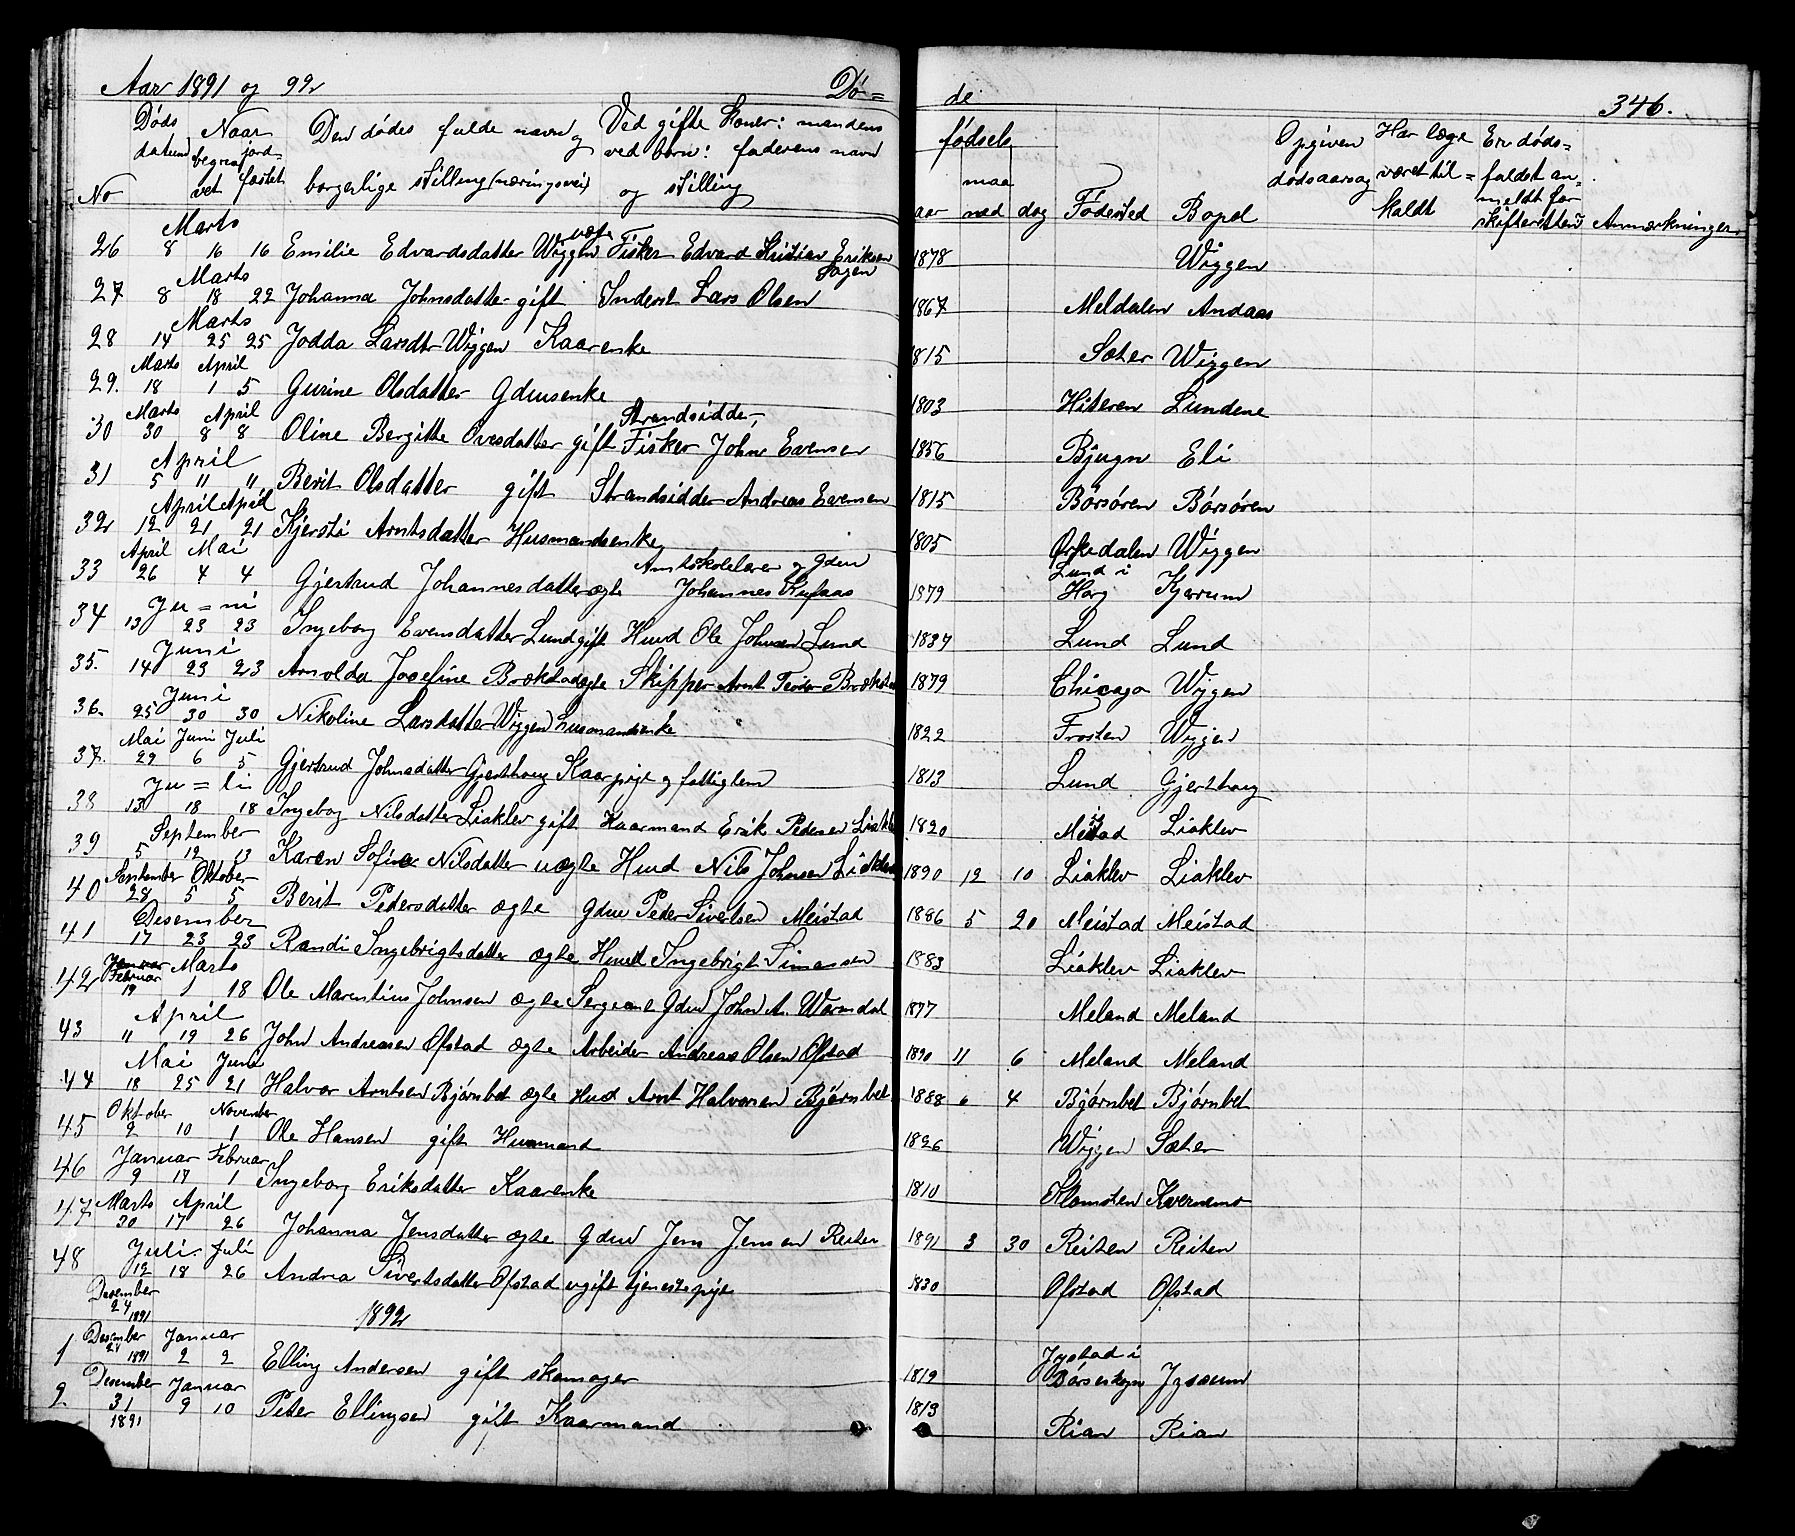 Aar 1891 og 92 Dö=de 346.
No Døds datum Naar begravet jordfæstet Den dødes fulde navn og borgerlige stilling (næringsvei) Ved gifte Koner: mandens ved børn: faderens navn og stilling fødsels aar maaned dag Fødested Bopel Opgiven dødsaarsag Har læge været til=kaldt Er døds=faldet an=meldt for skifteretten? Anmærkninger
Marts
26 8 16 16 Emilie Edvardsdatter Wiggen uægt Fisker Edvard Kristian Eriksen 1878 Wiggen
Marts
27 8 18 22 Johanna Johnsdatter gift Inderst Lars Olsen 1867 Meldalen Andaas
Marts
28 14 25 25 Jodda Larsdtr Wiggen Kaarenke 1815 Sæter Wiggen
Marts April
29. 18 1 5 Gurine Olsdatter Gdmsenke 1803 Hiteren Lundene
Marts April Strandsidder,
30 30 8 8 Oline Bergitte Ovesdatter gift Fisker John Evensen 1856 Bjugn Eli
April
31 5 " " Berit Olsdatter gift Strandsidder Andreas Evensen 1815 Börsören Börsören
April April
32 12 21 21 Kjersti Arntsdatter Husmandsenke 1805 Orkedalen Wiggen
April Mai Amtskolelærer og Gdm Lund i
33 26 4 4 Gjertrud Johannesdatter ægte Johannes 1879 Horg Kjærem
Ju=ni
34 13 23 23 Ingeborg Evensdatter Lund gift Husd Ole Johnsen Lund 1837 Lund Lund
Juni
35. 14 23 23 Arnolda Josefine Brækstad ægte Skipper Arnt Teodor Brækstad 1879 Chicago Wiggen
Juni
36. 25 30 30 Nikoline Larsdatter Wiggen husmandsenke 1822 Frosten Wiggen
Mai Juni Juli
37. 29 6 5 Gjertrud Johnsdatter Gjersthaug Kaarpige og fattiglem 1813 Lund Gjersthaug
Ju=li
38 13 18 18 Ingebog Nilsdatter Liaklev gift Kaarmand Erik Pedersen Liaklev 1820 Meistad Liaklev
September
39 5 12 13 Karen Sofine Nilsdatter uægte Husd Nils Johnsen Liaklev 1890 12 10 Liaklev Liaklev
September Oktober
40 28 5 5 Berit Pedersdatter ægte Gdm Peder Sivertsen Meistad 1886 5 20 Meistad Meistad
Desember
41 17 23 23 Randi Ingebrigtsdatter ægte Husd Ingebrigt Simonsen 1883 Liaklev Liaklev
Januar Februar Marts
42 19 1 18 Ole Marentius Johnsen ægte Sergeant Gdm John A. Warmdal 1877 Meland Meland
April
43 " 19 26 John Andreasen Ofstad ægte Arbeider Andreas Olsen Ofstad 1890 11 6 Meland Meland
Mai Juni
44 18 25 21 Halvor Arntsen Bjørnbet ægte Husd Arnt Halvorsen Bjørnbet 1888 6 4 Bjørnbet Bjørnbet
Oktober November
45 2 10 1 Ole Hansen gift Husmand 1826 Wiggen Sæter
Januar Februar
46 9 17 1 Ingeborg Eriksdatter Kaarenke 1810 Klomsten Kvernmo
Marts April
47 30 17 26 Johanna Jensdatter ægte Gdm Jens Jensen Reiten 1891 3 30 Reiten Reiten
Juli Juli
48 12 18 26 Andrea Sivertsdatter Ofstad ugift tjenestepige 1830 Ofstad Ofstad
Desember 24 1891
1892
Desember Januar Jystad i
1 24 1891 2 2 Elling Andersen gift skomager 1819 Børseskogn
Desember Januar
2. 31 1891 9 10 Peter Ellingsen gift Kaarmand 1813 Rian Rian